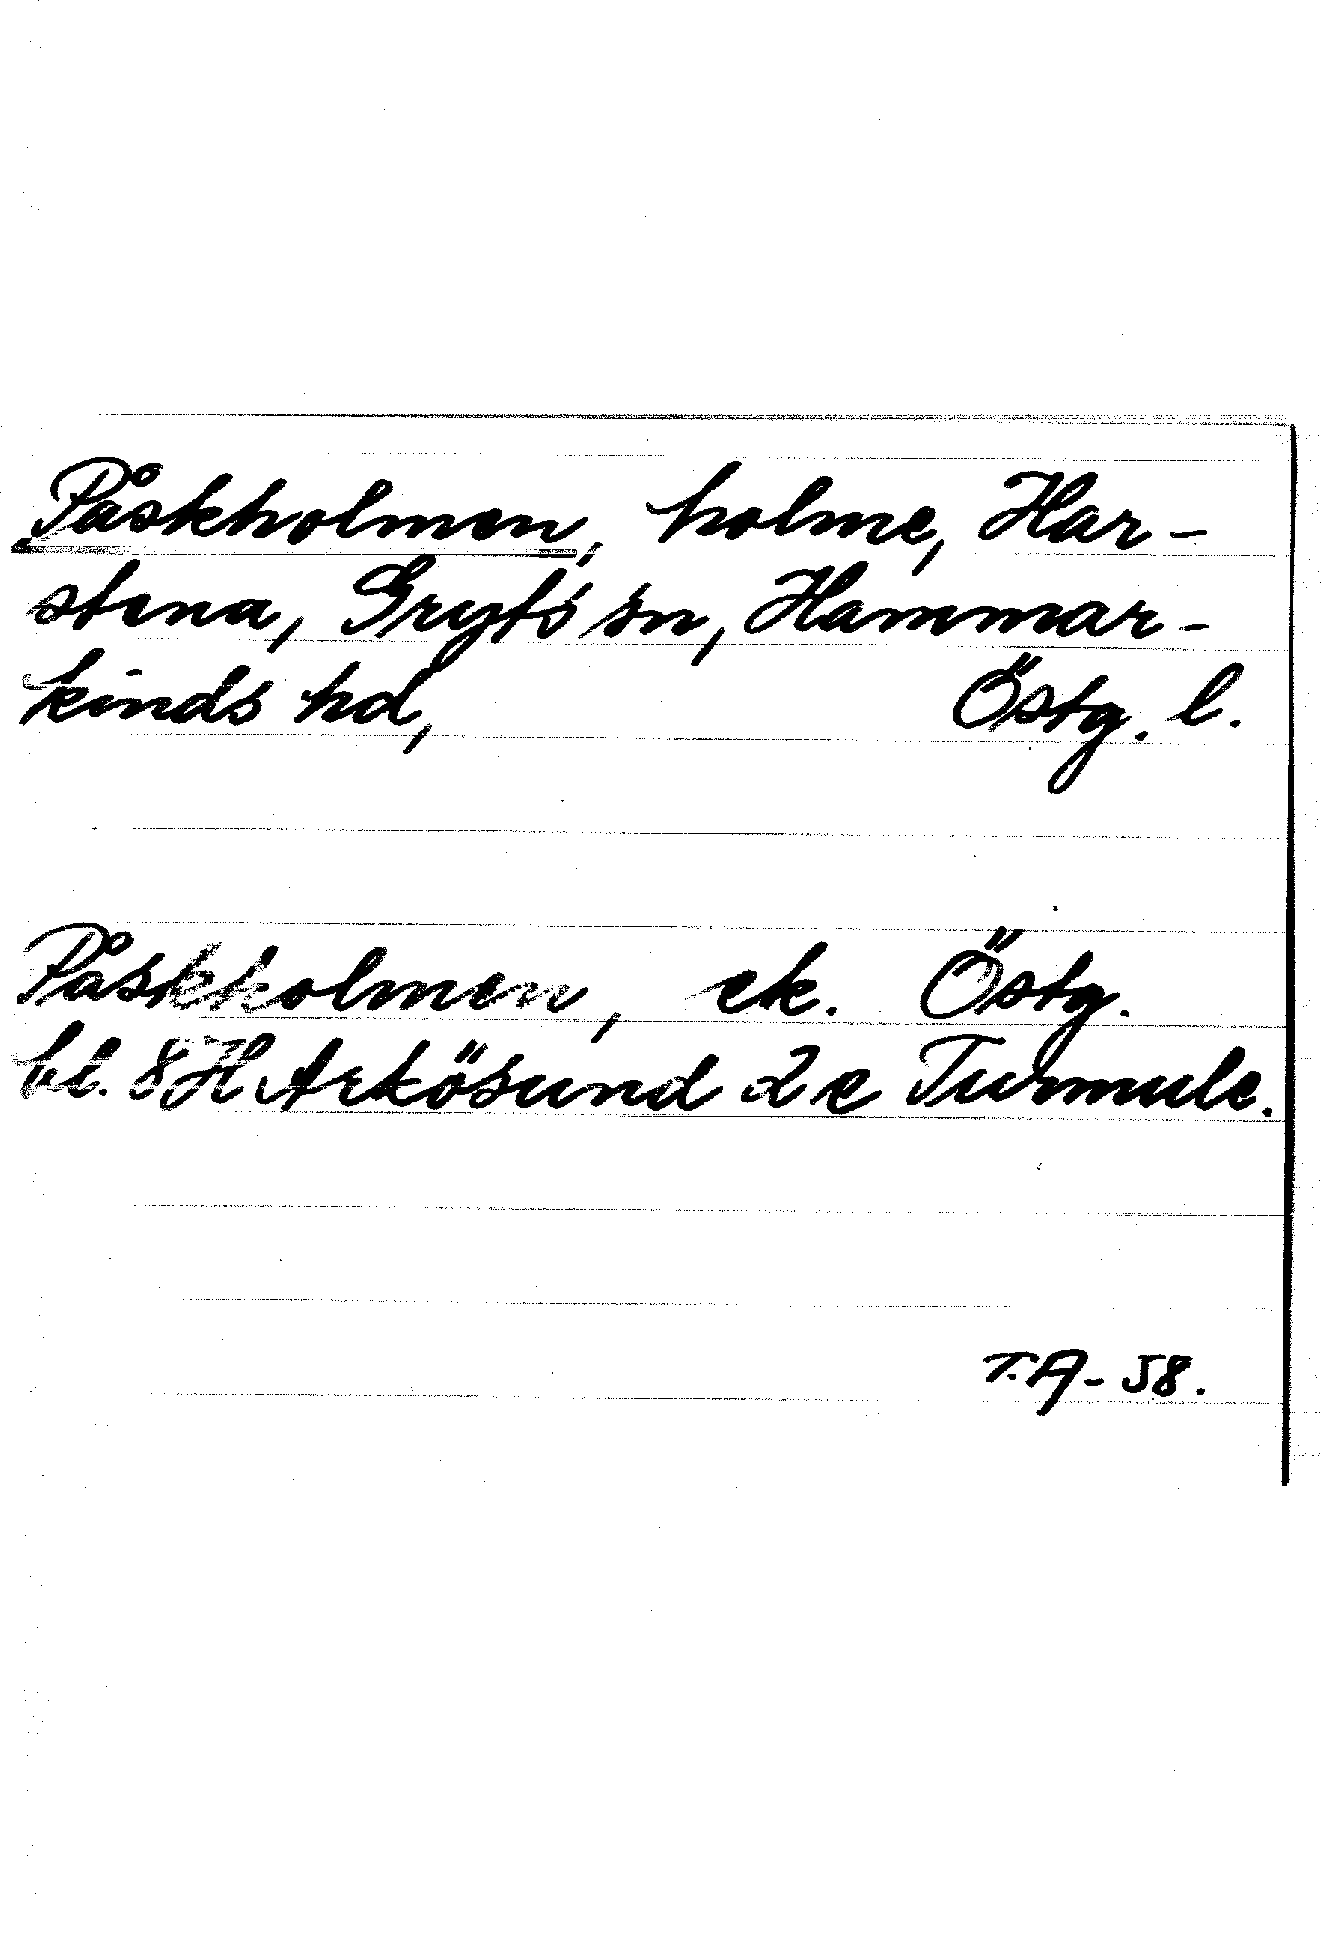 Påskholmen, holme, Har-
stena, Gryts sn, Hammar-
kinds hd, Östg. l.
Påskholmen, ek. Östg.
bl. 8H Arkösund 2c Turmule.
T.A-58.